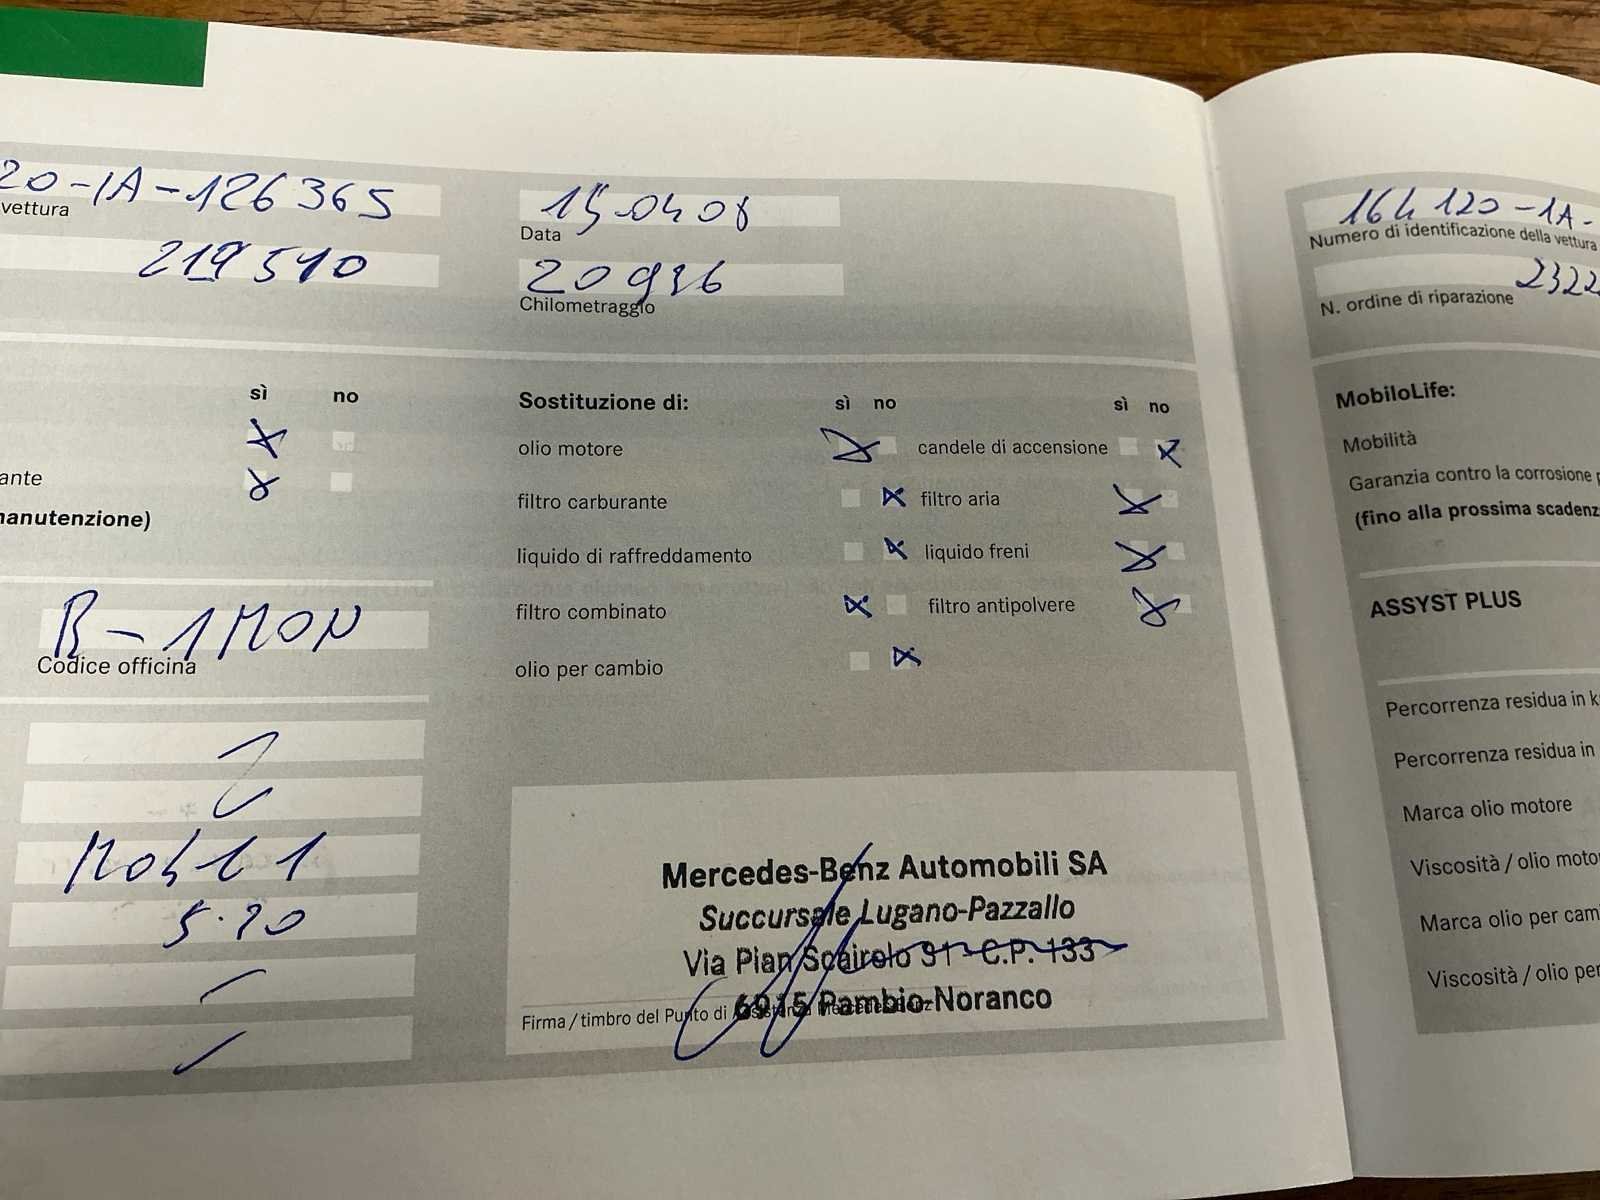 20-1A-126365
vettura
219510
15.04.08
Data
20936
Chilometraggio
sì no
ante
manutenzione)
Sostituzione di: sì no sì no
olio motore candele di accensione
filtro carburante filtro aria
liquido di raffreddamento liquido freni
filtro combinato filtro antipolvere
olio per cambio
Codice officina
Mercedes-Benz Automobili SA
Succursale Lugano-Pazzallo
Via Pian Scairolo 31 - C.P. 133
6915 Pambio-Noranco
Firma / timbro del Punto di Assistenza Mercedes-Benz
164 120-1A-
Numero di identificazione della vettura
N. ordine di riparazione
MobiloLife:
Mobilità
Garanzia contro la corrosione p
(fino alla prossima scadenz
ASSYST PLUS
Percorrenza residua in k
Percorrenza residua in
Marca olio motore
Viscosità / olio moto
Marca olio per cam
Viscosità / olio per